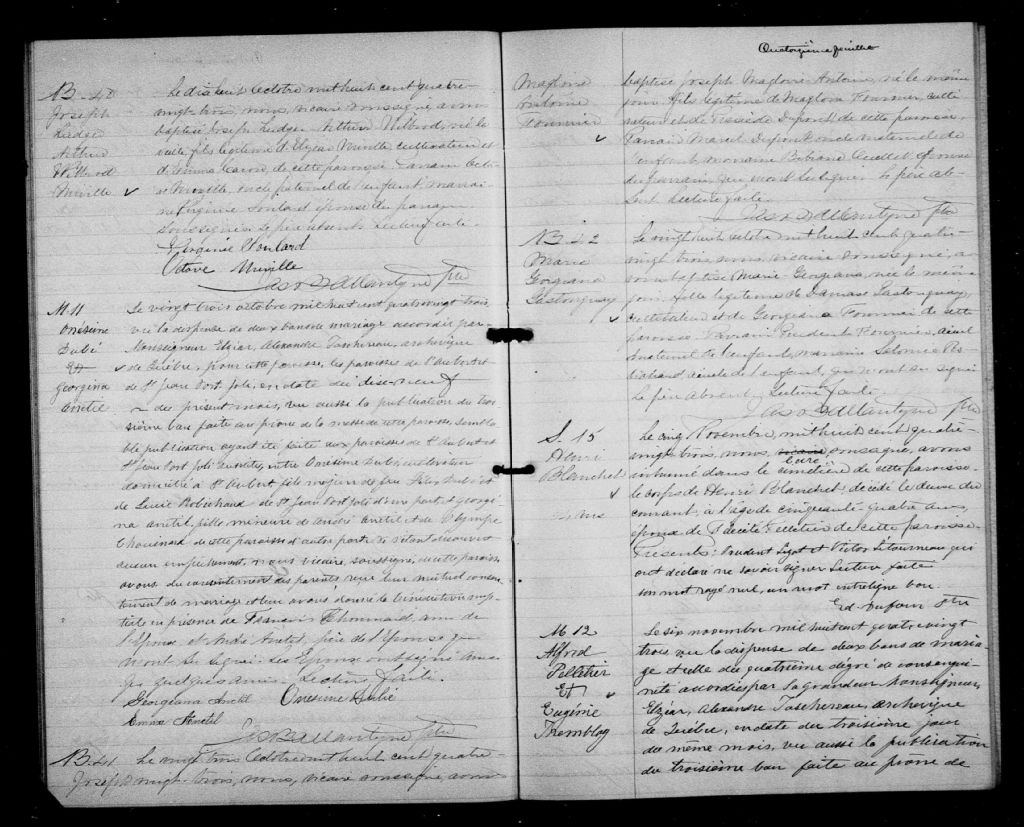 B-40
Joseph
Ludger
Arthur
Wilbrod
Miville
Le dix huit octobre mil huit cent quatre-
vingt trois, nous, vicaire soussigné, avons
baptisé Joseph Ludger Arthur Wilbrod, né la
veille fils légitime d'Elzéar Miville cultivateur et
d'Emma Caron, de cette paroisse Parrain Octa-
ve Miville, oncle paternel de l'enfant, marrai-
ne Virginie Soulard épouse du parrain
soussignés. Le père absent. Lecture faite.
Virginie Soulard
Octave Miville
Jas. D. Ballantyne Ptre
M. 11
Onésime
Dubé
Et
Georgina
Anctil
Le vingt trois octobre mil huit cent quatre vingt trois,
vu la dispense de deux bans de mariage accordée par
Monseigneur Elzéar, Alexandre Taschereau, archevêque
de Québec, pour cette paroisse, les paroisses de St Aubert et
de St Jean Port Joli, en date du dix-neuf
du présent mois, vu aussi la publication du troi-
sième ban faite au prône de la messe de cette paroisse, sembla-
ble publication ayant été faite aux paroisses de St Aubert et
St Jean Port Joli, entre Onésime Dubé, cultivateur
domicilié à St Aubert, fils majeur de feu Dubé et
de Lucie Robichaud de St Jean Port Joli d'une part & Georgi-
na Anctil, fille mineure de André Anctil et de Olympe
Chouinard de cette paroisse d'autre part; ne s'étant découvert
aucun empêchement, nous vicaire, soussigné, de cette paroisse
avons du consentement des parents reçu leur mutuel consen-
tement de mariage et leur avons donné la bénédiction nup-
tiale en présence de François Chouinard, ami de
l'époux et André Anctil, père de l'épouse qui
n'ont su signer. Les Epoux ont signé avec
quelques amis. Lecture faite.
Georgiana Anctil Onésime Dubé
Emma Anctil
Jas D Ballantyne Ptre
B-41
Joseph
Le vingt trois Octobre mil huit cent quatre-
vingt-trois, nous, vicaire soussigné, avons
Quatorzième feuillet
Magloire
Antoine
Fournier
baptisé Joseph Magloire Antoine, né le même
jour fils légitime de Magloire Fournier, culti-
vateur et de Dupont de cette paroisse,
Parrain Marcel Dupont oncle maternel de
l'enfant, marraine Ouellet épouse
du parrain, qui n'ont su signer. Le père ab-
sent. Lecture faite.
Jas D Ballantyne Ptre
B-42
Marie
Georgiana
Lastonguay
Le vingt huit octobre mil huit cent quatre-
vingt trois, nous, vicaire soussigné, a-
vons baptisé Marie Georgiana, née le même
jour, fille légitime de Damase Lastonguay,
cultivateur et de Georgiana Fournier de cette
paroisse. Parrain Prudent Fournier, aïeul
maternel de l'enfant, marraine Salomée Ro-
bichaud, aïeule de l'enfant, qui n'ont su signer
Le père absent. Lecture faite.
Jas D Ballantyne Ptre
S. 15
Henri
Blanchet
54 ans
Le cinq Novembre, mil huit cent quatre-
vingt trois, nous, vicaire soussigné, avons
Curé
inhumé dans le cimetière de cette paroisse
le corps de Henri Blanchet, décédé le deux du
courant, à l'âge de cinquante quatre ans,
époux de Pelletier de cette paroisse.
Présents: Prudent Lizot et Victor Létourneau qui
ont déclaré ne savoir signer. Lecture faite
Un mot rayé nul, un mot entreligne bon
Ed. Dufour Ptre
M 12
Alfred
Pelletier
Et
Eugénie
Tremblay
Le six novembre mil huit cent quatre vingt
trois vu la dispense de deux bans de maria-
ge et celle du quatrième dégré de consangui-
nité accordées par Sa Grandeur Monseigneur,
Elzéar, Alexandre Taschereau, archevêque
de Québec, en date du troisième jour
du même mois, vu aussi la publication
du troisième ban faite au prône de